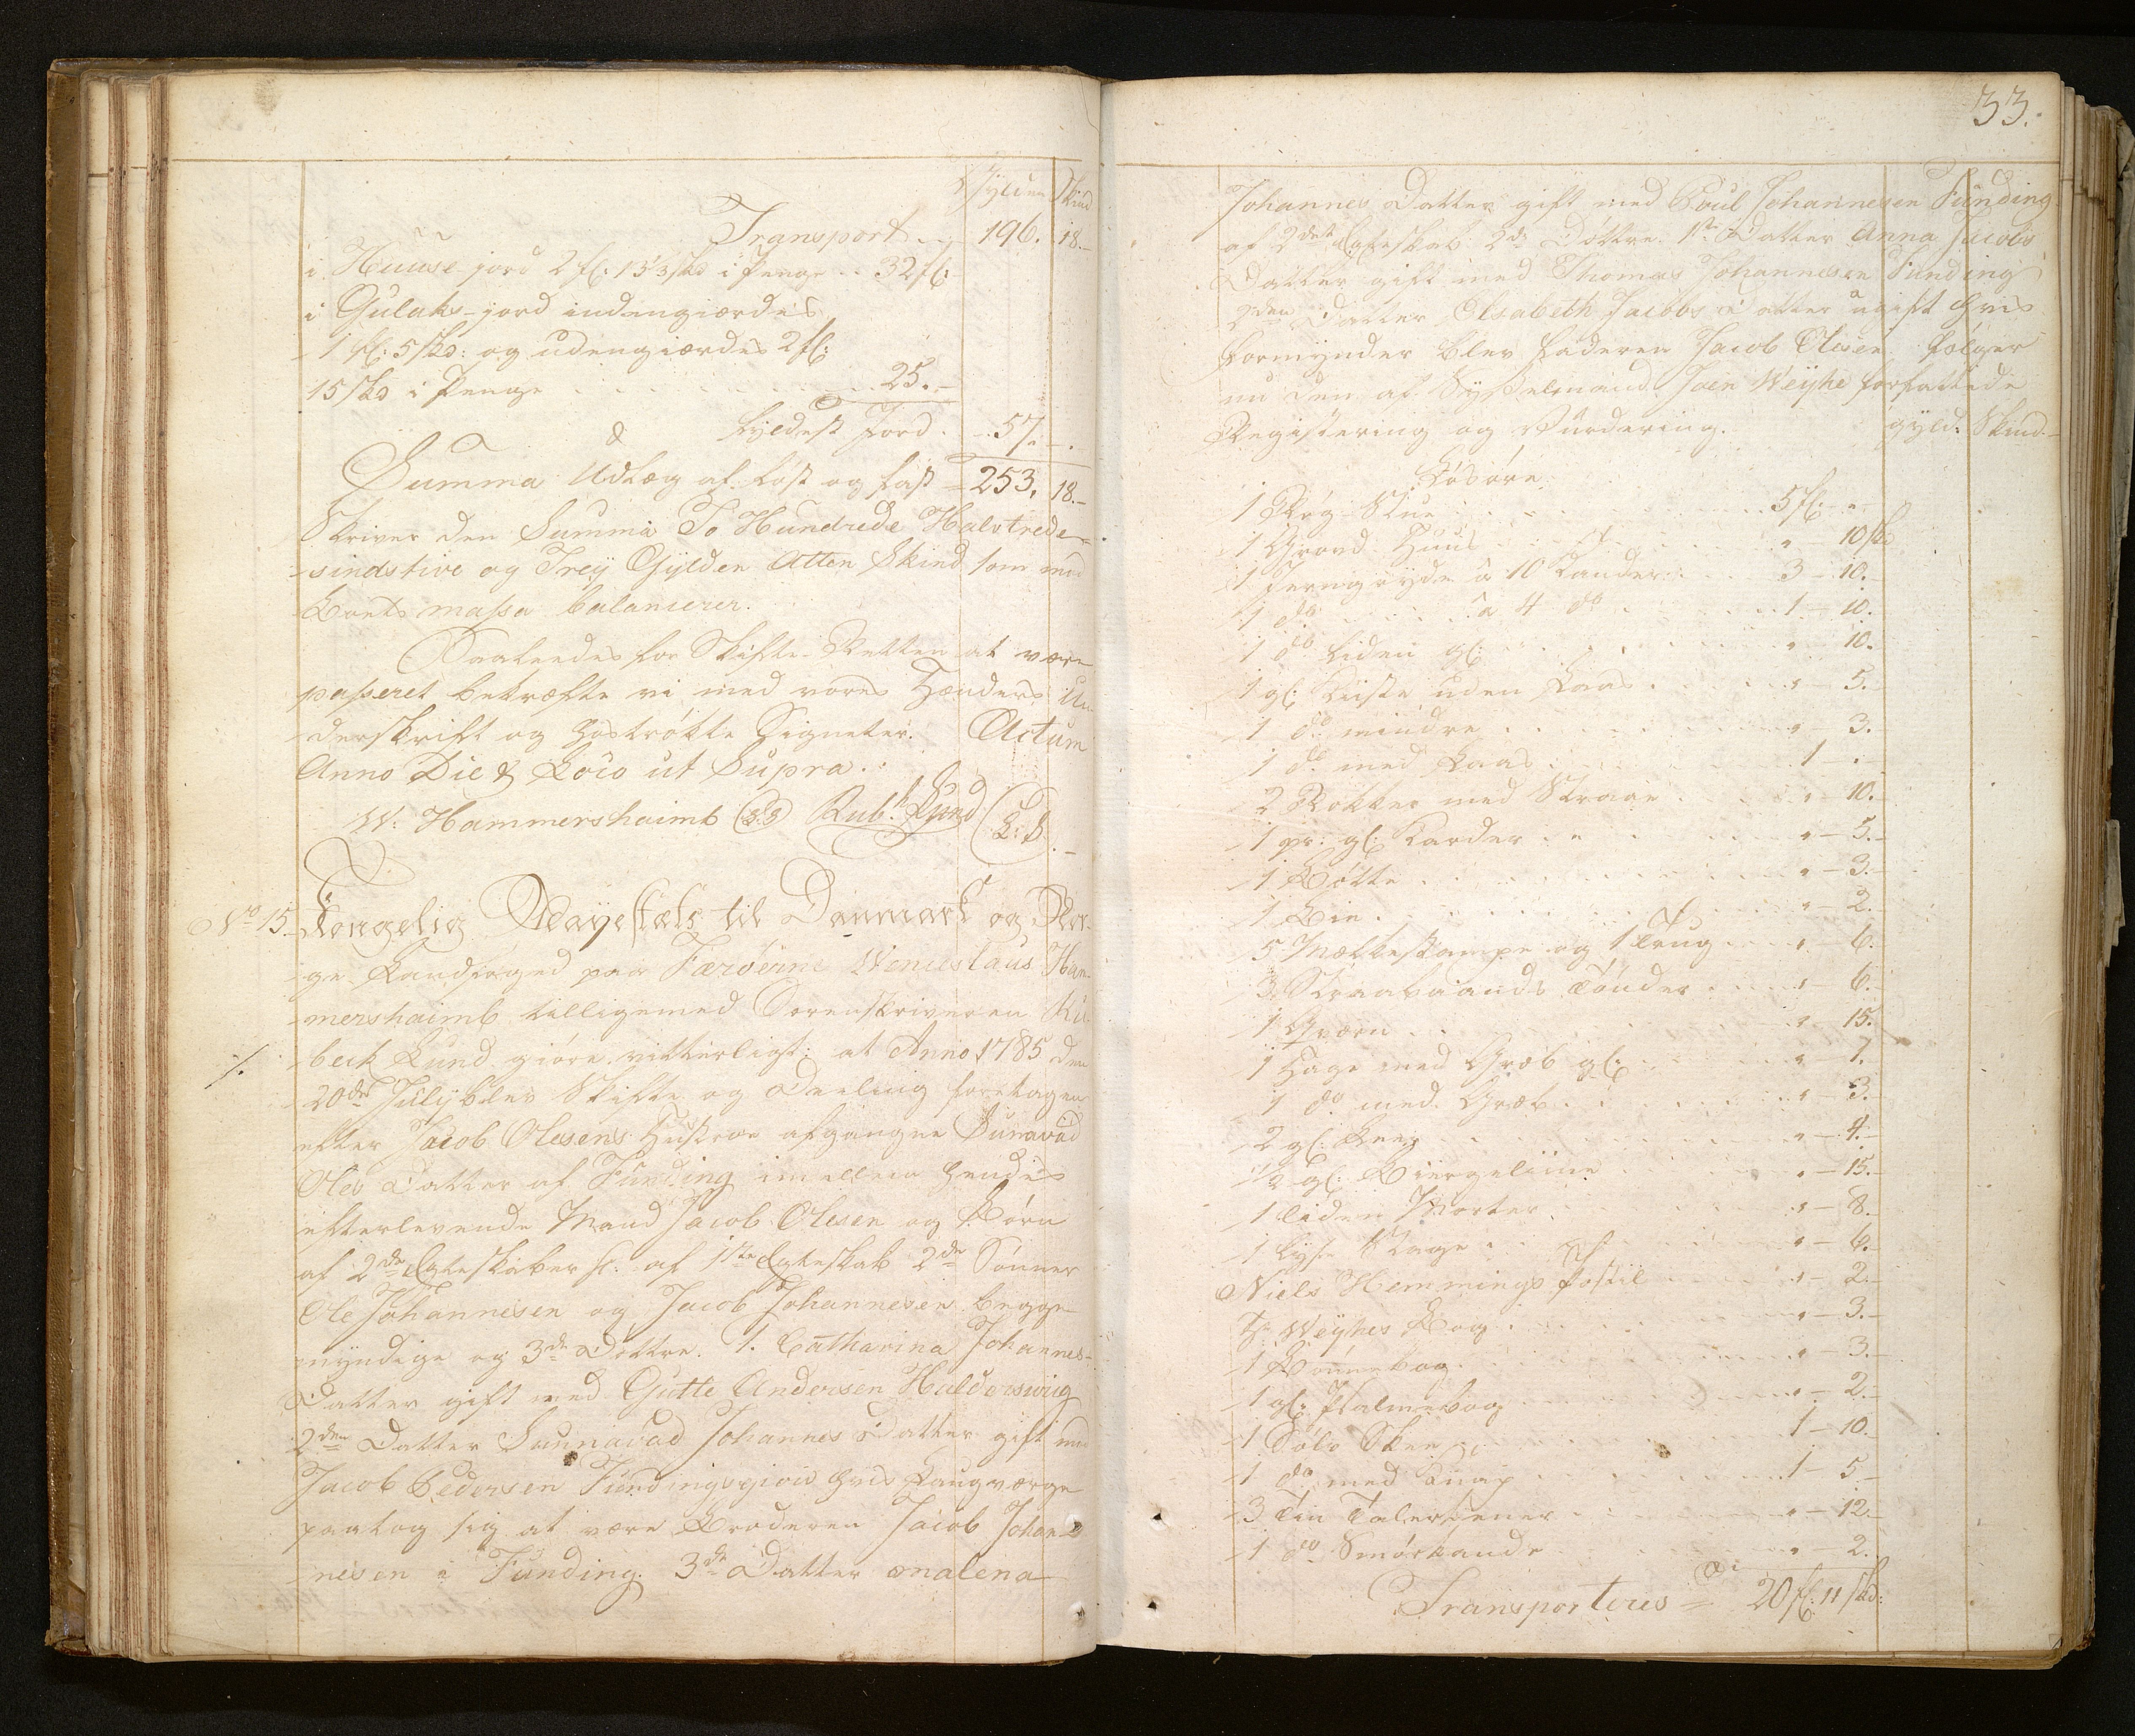 Gylden Skind
Transport .. 196. 18.
i Huuse-jord 2 fl: 13 1/3 skd i Penge .. 32 fl:
i Gulaks-jord indengiærdes
1 fl: 5 skd: og udengiærdes 2 fl:
15 skd i Penge . . . . . 25.
fyldest Jord . 57. -
Summa Udlæg af løst og fast = 253. 18.
Skriver den Summa To Hundrede Halvtrede-
sindstive og Trey Gylden Atten Skind som med
Boets massa balancerer.
Saaledes for Skifte-Retten at være
passeret bekræfte vi med vores Hænders Un-
derskrift og hostrøkte Signeter. Actum
Anno Die & Loco ut Supra.
W: Hammershaimb (L.S.) Rubk. Lund (L:S.
No 15. Kongelig Mayestæts til Danmark og Nor-
ge Landfoged paa Færøerne Wenceslaus Ham-
mershaimb tilligemed Sorenskriveren Ru-
beck Lund giøre vitterligt: at Anno 1785 den
20de July blev Skifte og Deeling foretagen
efter Jacob Olesens Hustroe afgangne Sunnevad
Oles Datter af Funding imellem hendes
efterlevende Mand Jacob Olesen og Børn
af 2de Egteskaber sc: af 1ste Egteskab 2de Sønner
Ole Johannesen og Jacob Johannesen begge
myndige og 3de Døttre. 1. Catharina Johannes-
Datter gift med Gutte Andersen Halderswig
2den Datter Sunnavad Johannes Datter gift med
Jacob Pedersen Fundingsgiov hvis Laugværge
paatog sig at være Broderen Jacob Johan-
nesen i Funding. 3de Datter Malena
33.
Johannes Datter gift med Poul Johannesen Funding
af 2det Egteskab 2de Døttre. 1ste Datter Anna Jacobs
Datter gift med Thomas Johannesen Funding
2den Datter Elsabeth Jacobs Datter ugift hvis
Formynder blev Faderen Jacob Olesen. følger
nu den af Sysselmand Joen Weyhe forfattede
Registering og Vurdering. gyld: Skind
Løsøre
1 Røg-Stue . . . 5 fl: -
1 Grond Huus . . . " - 10 skd
1 Jerngryde à 10 Kander . . 3 - 10.
1 do . . . à 4 do . . . 1 - 10.
1 do liden gl: . . . " - 10.
1 gl: Kiiste uden Laas . . . " - 5.
1 do mindre . . . " - 3.
1 do med Laas . . . 1 - "
2 Rokker med Straae . . . " - 10.
1 pr: gl: Karder . . . " - 5.
1 Bøtte . . . " - 3.
1 Bie . . . " - 2.
5 Melkeskampe og 1 Trug . . . " - 6.
3 Straabaands Tønder . . . " - 6.
1 Qværn . . . " - 15.
1 Hage med Græb gl: . . . " - 1.
1 do med Græb . . . " - 3.
2 gl: Knive . . . " - 4.
1/2 gl: Biergeliine . . . " - 15.
1 liden Morter . . . " - 8.
1 Lyse Stage . . . " - 6.
Niels Hemmings Postil . . . " - 2.
Hr Weyhes Bog . . . " - 3.
1 Bønnebog . . . " - 3.
1 gl: Psalmebog . . . " - 2.
1 Sølv Skee . . . 1 - 10.
1 do med Knap . . . 1 - 5.
3 Tin Talerkener . . . " - 12.
1 do Smørkande . . . " - 2.
Transporteres = 20 fl: 11 skd: